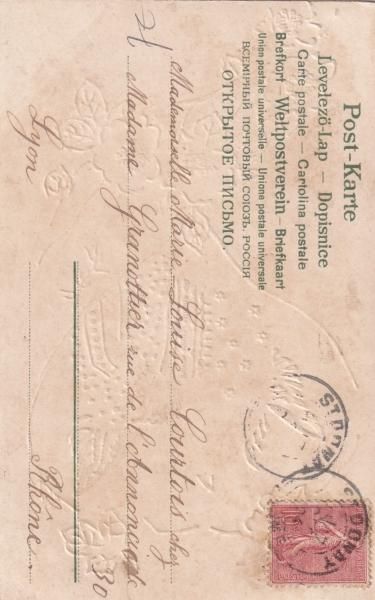 Post-Karte
Levelező-Lap – Dopisnice
Carte postale – Cartolina postale
Brefkort – Weltpostverein – Briefkaart
Union postale universelle – Unione postale universale
ВСЕМІРНЫЙ ПОЧТОВЫЙ СОЮЗЪ. РОССІЯ
ОТКРЫТОЕ ПИСЬМО.
ST DONAT
ST DONAT
10
Mademoiselle Marie Louise Courtois chez
Madame Granottier rue de l'Annonciade
30
Lyon
Rhône